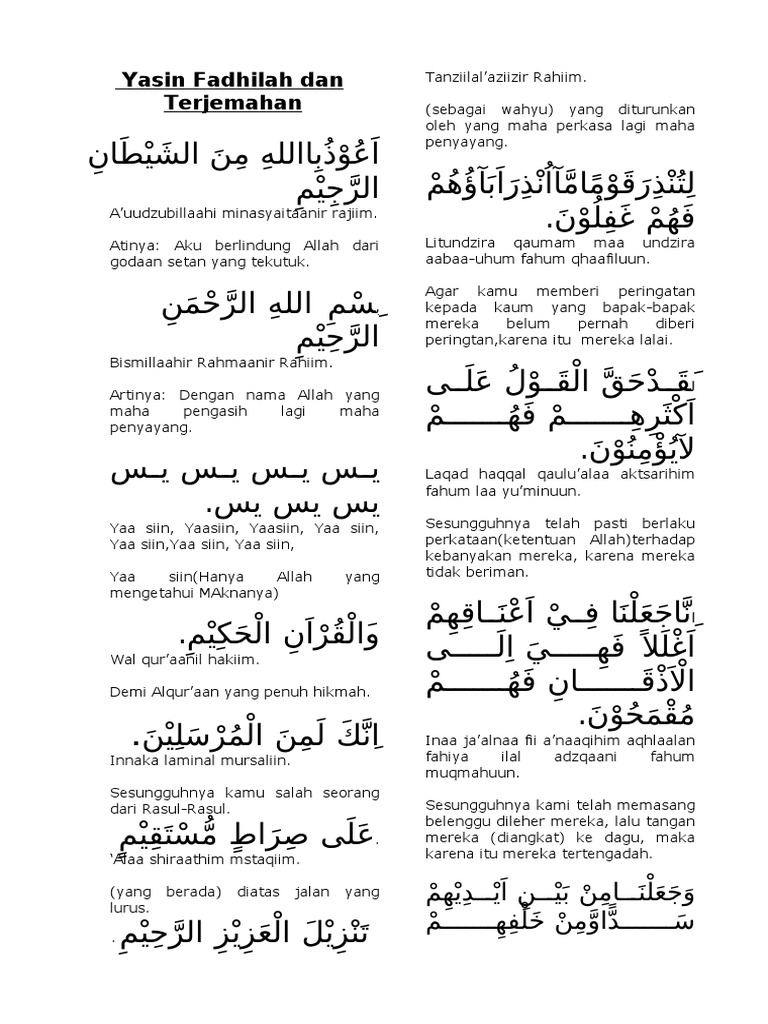 Yasin Fadhilah dan
Terjemahan
اَعُوْذُبِااللهِ مِنَ الشَيْطَانِ
الرَّجِيْمِ
A’uudzubillaahi minasyaitaanir rajiim.
Atinya: Aku berlindung Allah dari
godaan setan yang tekutuk.
بِسْمِ اللهِ الرَّحْمَنِ
الرَّحِيْمِ
Bismillaahir Rahmaanir Rahiim.
Artinya: Dengan nama Allah yang
maha pengasih lagi maha
penyayang.
يـس يـس يـس يـس
يس يس يس.
Yaa siin, Yaasiin, Yaasiin, Yaa siin,
Yaa siin,Yaa siin, Yaa siin,
Yaa siin(Hanya Allah yang
mengetahui MAknanya)
وَالْقُرْاَنِ الْحَكِيْمِ.
Wal qur’aanil hakiim.
Demi Alqur’aan yang penuh hikmah.
اِنَّكَ لَمِنَ الْمُرْسَلِيْنَ.
Innaka laminal mursaliin.
Sesungguhnya kamu salah seorang
dari Rasul-Rasul.
عَلَى صِرَاطٍ مُّسْتَقِيْمٍ.
‘Alaa shiraathim mstaqiim.
(yang berada) diatas jalan yang
lurus.
تَنْزِيْلَ الْعَزِيْزِ الرَّحِيْمِ.
Tanziilal’aziizir Rahiim.
(sebagai wahyu) yang diturunkan
oleh yang maha perkasa lagi maha
penyayang.
لِتُنْذِرَقَوْمًامَّآاُنْذِرَاَبَآؤُهُمْ
فَهُمْ غَفِلُوْنَ.
Litundzira qaumam maa undzira
aabaa-uhum fahum qhaafiluun.
Agar kamu memberi peringatan
kepada kaum yang bapak-bapak
mereka belum pernah diberi
peringtan,karena itu mereka lalai.
لَقَـدْحَقَّ الْقَـوْلُ عَلَـى
اَكْثَرِهِـمْ فَهُـمْ
لآيُؤْمِنُوْنَ.
Laqad haqqal qaulu’alaa aktsarihim
fahum laa yu’minuun.
Sesungguhnya telah pasti berlaku
perkataan(ketentuan Allah)terhadap
kebanyakan mereka, karena mereka
tidak beriman.
اِنَّاجَعَلْنَا فِـيْ اَعْنَـاقِهِمْ
اَغْلَلاً فَهِـيَ اِلَـى
الْاَذْقَـانِ فَهُـمْ
مُقْمَحُوْنَ.
Inaa ja’alnaa fii a’naaqihim aqhlaalan
fahiya ilal adzqaani fahum
muqmahuun.
Sesungguhnya kami telah memasang
belenggu dileher mereka, lalu tangan
mereka (diangkat) ke dagu, maka
karena itu mereka tertengadah.
وَجَعَلْنَـامِنْ بَيْـنِ اَيْـدِيْهِمْ
سَـدًّاوَّمِنْ خَلْفِهِـمْ